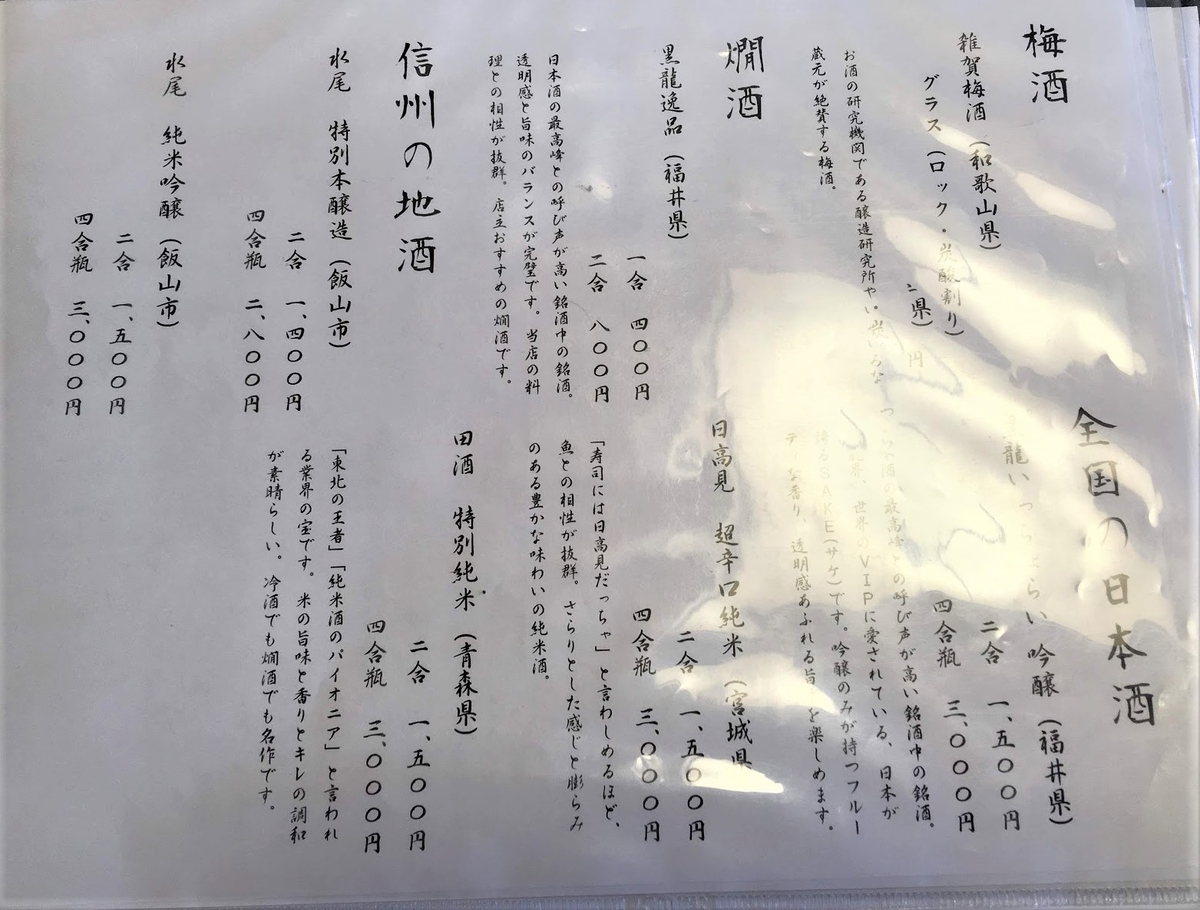 梅酒
雑賀梅酒（和歌山県）
グラス（ロック・炭酸割り）
円
お酒の研究機関である醸造研究所や
蔵元が絶賛する梅酒。
燗酒
黒龍逸品（福井県）
一合 四〇〇円
二合 八〇〇円
日本酒の最高峰との呼び声が高い銘酒中の銘酒。
透明感と旨味のバランスが完璧です。当店の料
理との相性が抜群。店主おすすめの燗酒です。
信州の地酒
水尾 特別本醸造（飯山市）
二合 一、四〇〇円
四合瓶 二、八〇〇円
水尾 純米吟醸（飯山市）
二合 一、五〇〇円
四合瓶 三、〇〇〇円
全国の日本酒
龍いっちょらい 吟醸（福井県）
二合 一、五〇〇円
四合瓶 三、〇〇〇円
の最高峰との呼び声が高い銘酒中の銘酒。
世界のVIPに愛されている、日本が
誇るSAKE（サケ）です。吟醸のみが持つフルー
ティな香り、透明感あふれる旨 を楽しめます。
日高見 超辛口純米（宮城県
二合 一、五〇〇円
四合瓶 三、〇〇〇円
「寿司には日高見だっちゃ」と言わしめるほど、
魚との相性が抜群。さらりとした感じと膨らみ
のある豊かな味わいの純米酒。
田酒 特別純米（青森県）
二合 一、五〇〇円
四合瓶 三、〇〇〇円
「東北の王者」「純米酒のパイオニア」と言われ
る業界の宝です。米の旨味と香りとキレの調和
が素晴らしい。冷酒でも燗酒でも名作です。